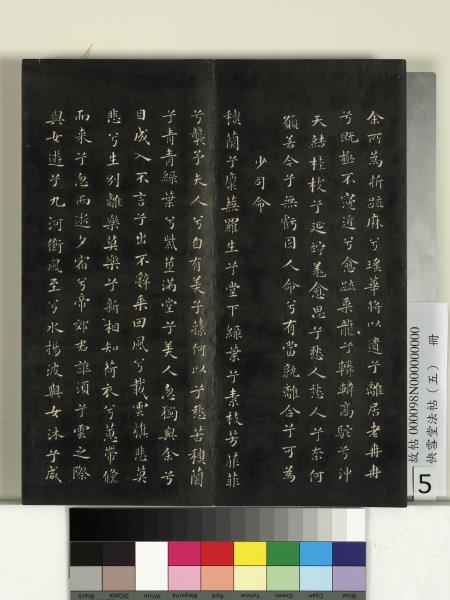 余所為折疏麻兮瑤華將以遺兮離居老冉冉
兮既極不寖近兮愈疏乘龍兮轔轔高駝兮沖
天結桂枝兮延竚羌愈思兮愁人愁人兮奈何
願若今兮無虧固人命兮有當孰離合兮可為
少司命
穠蘭兮麋蕪羅生兮堂下綠葉兮素枝芳菲菲
兮襲予夫人兮自有美子蓀何以兮愁苦穠蘭
兮青青綠葉兮紫莖滿堂兮美人忽獨與余兮
目成入不言兮出不辭乘回風兮載雲旗悲莫
悲兮生別離樂莫樂兮新相知荷衣兮蕙帶儵
而来兮忽而逝夕宿兮帝郊君誰須兮雲之際
與女遊兮九河衝風至兮水揚波與女沐兮咸
故帖000098N000000000
快雪堂法帖（五） 冊
5
Blue
Cyan
Green
Yellow
Red
Magenta
White
3/Color
Black